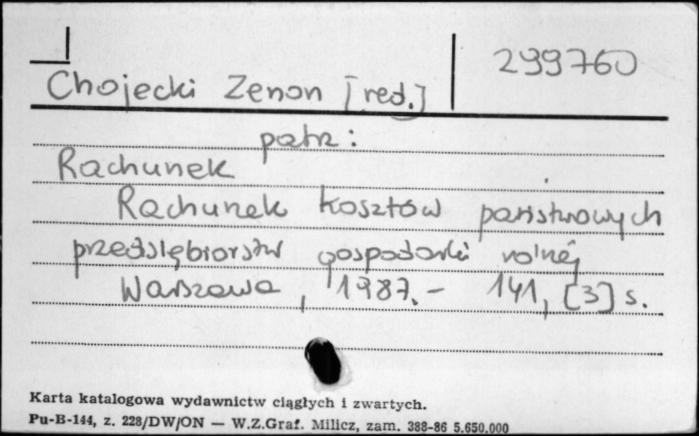 299760
Chojecki Zenon [red.]
patrz:
Rachunek
Rachunek kosztów państwowych
przedsiębiorstw gospodarki rolnej
Warszawa, 1987.- 141, [3] s.
Karta katalogowa wydawnictw ciągłych i zwartych.
Pu-B-144, z. 228/DW/ON — W.Z.Graf. Milicz, zam. 388-86 5.650.000